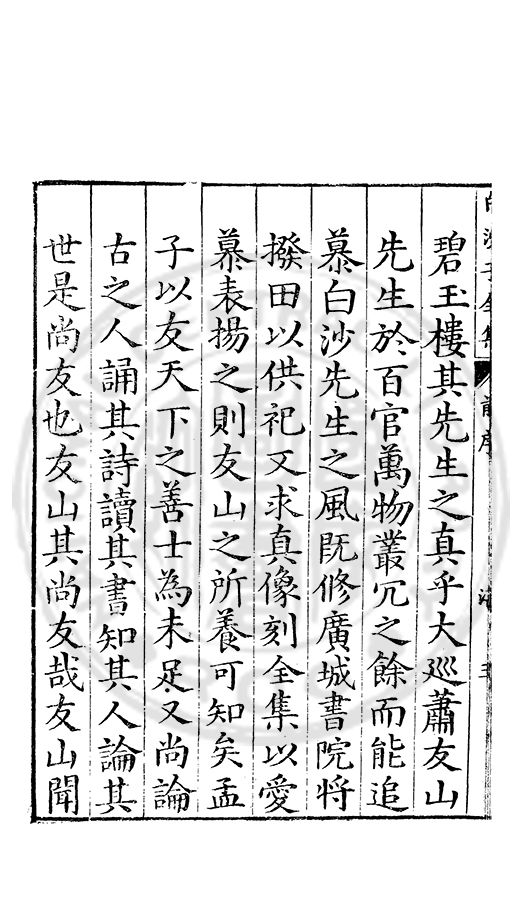 碧玉樓其先生之真乎大巡蕭友山
先生於百官萬物叢冗之餘而能追
慕白沙先生之風既修廣城書院將
撥田以供祀又求真像刻全集以愛
慕表揚之則友山之所養可知矣孟
子以友天下之善士為未足又尚論
古之人誦其詩讀其書知其人論其
世是尚友也友山其尚友哉友山聞